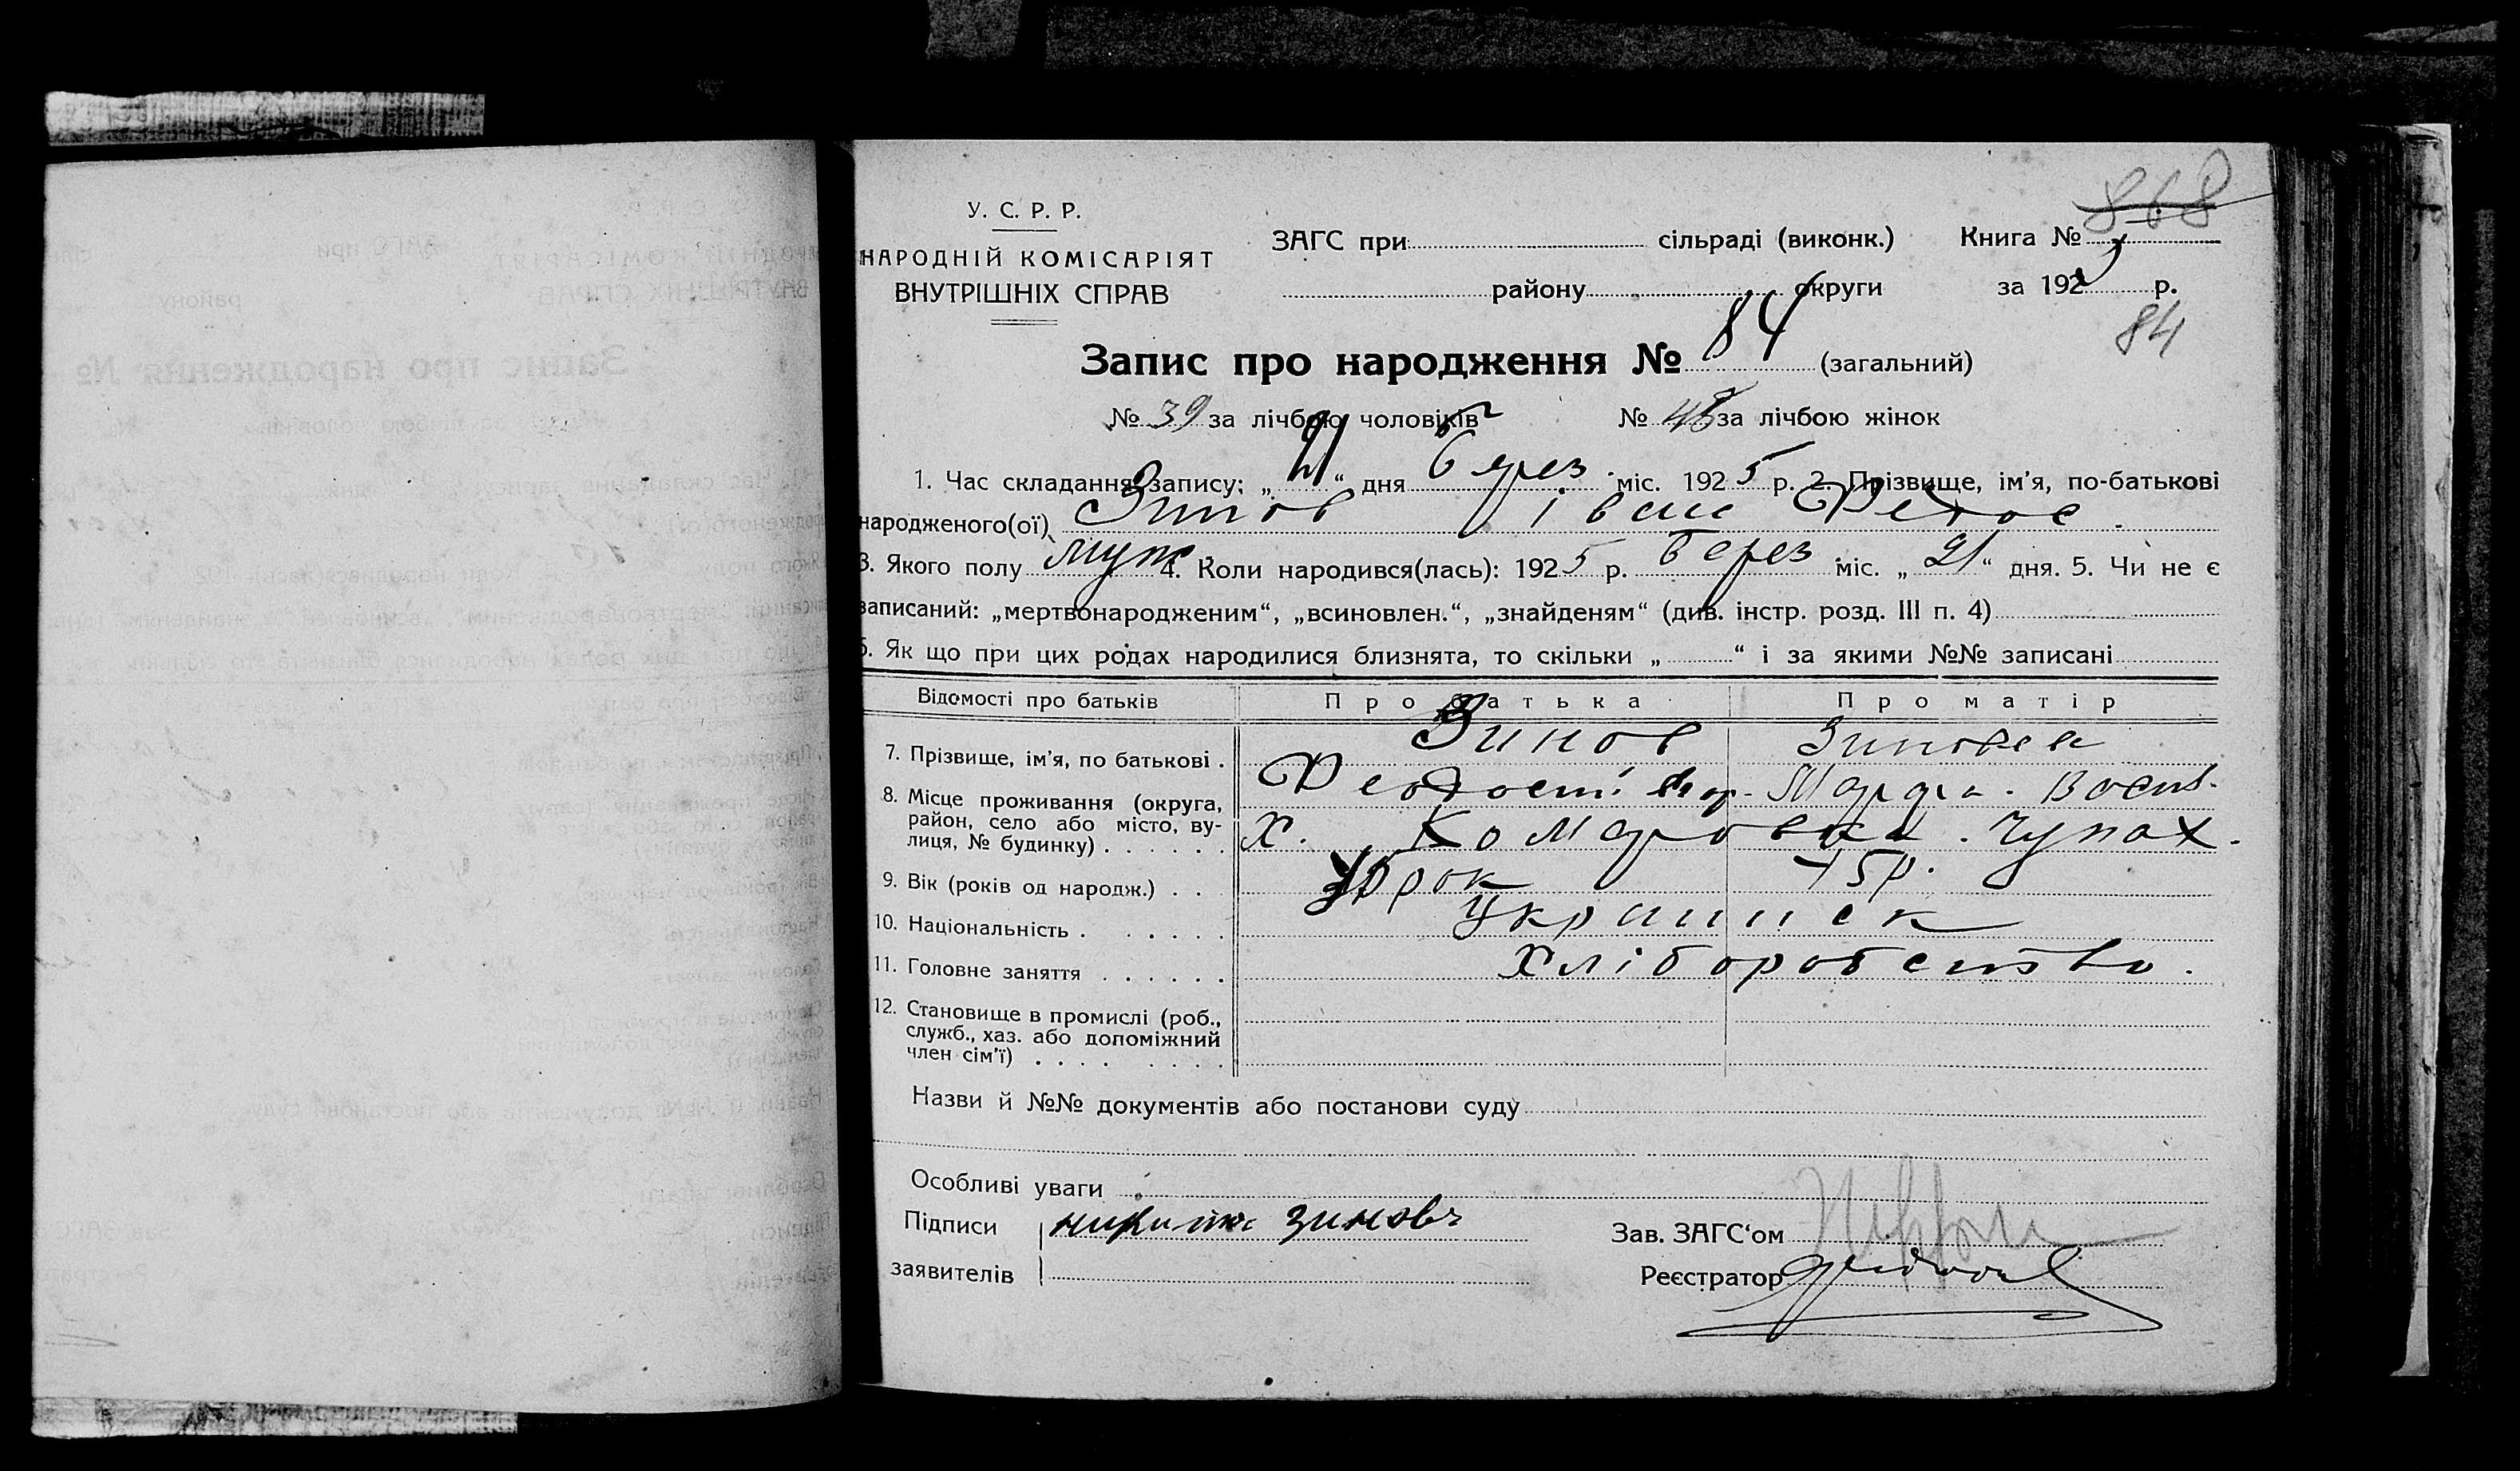 868
У. С. Р. Р.
НАРОДНІЙ КОМІСАРІЯТ
ВНУТРІШНІХ СПРАВ
ЗАГС при сільраді (виконк.) Книга №
району округи за 1925 р.
84
Запис про народження № 84 (загальний)
№ 39 за лічбою чоловіків № 48 за лічбою жінок
1. Час складання запису: „ “ дня берез міс. 1925 р. 2. Прізвище, ім’я, по-батькові
народженого(ої) Зинов Іван Федос.
3. Якого полу муж 4. Коли народився(лась): 1925 р. берез міс. „21“ дня. 5. Чи не є
записаний: „мертвонародженим“, „всиновлен.“, „знайденям“ (див. інстр. розд. III п. 4)
6. Як що при цих родах народилися близнята, то скільки „ “ і за якими №№ записані
Відомості про батьків Про батька Про матір
7. Прізвище, ім’я, по батькові . Зинов Зинова
Феодосій
8. Місце проживання (округа, район, село або місто, вулиця, № будинку) . . . . . . Х. Комаровка. Чупах.
9. Вік (років од народж.) . . рок 45р.
10. Національність . . . . . . Украинск
11. Головне заняття . . . . . . Хліборобство.
12. Становище в промислі (роб., служб., хаз. або допоміжний член сім’ї) . . . . . . . .
Назви й №№ документів або постанови суду
Особливі уваги
Підписи никита зиновъ Зав. ЗАГС‘ом
заявителів Реєстратор